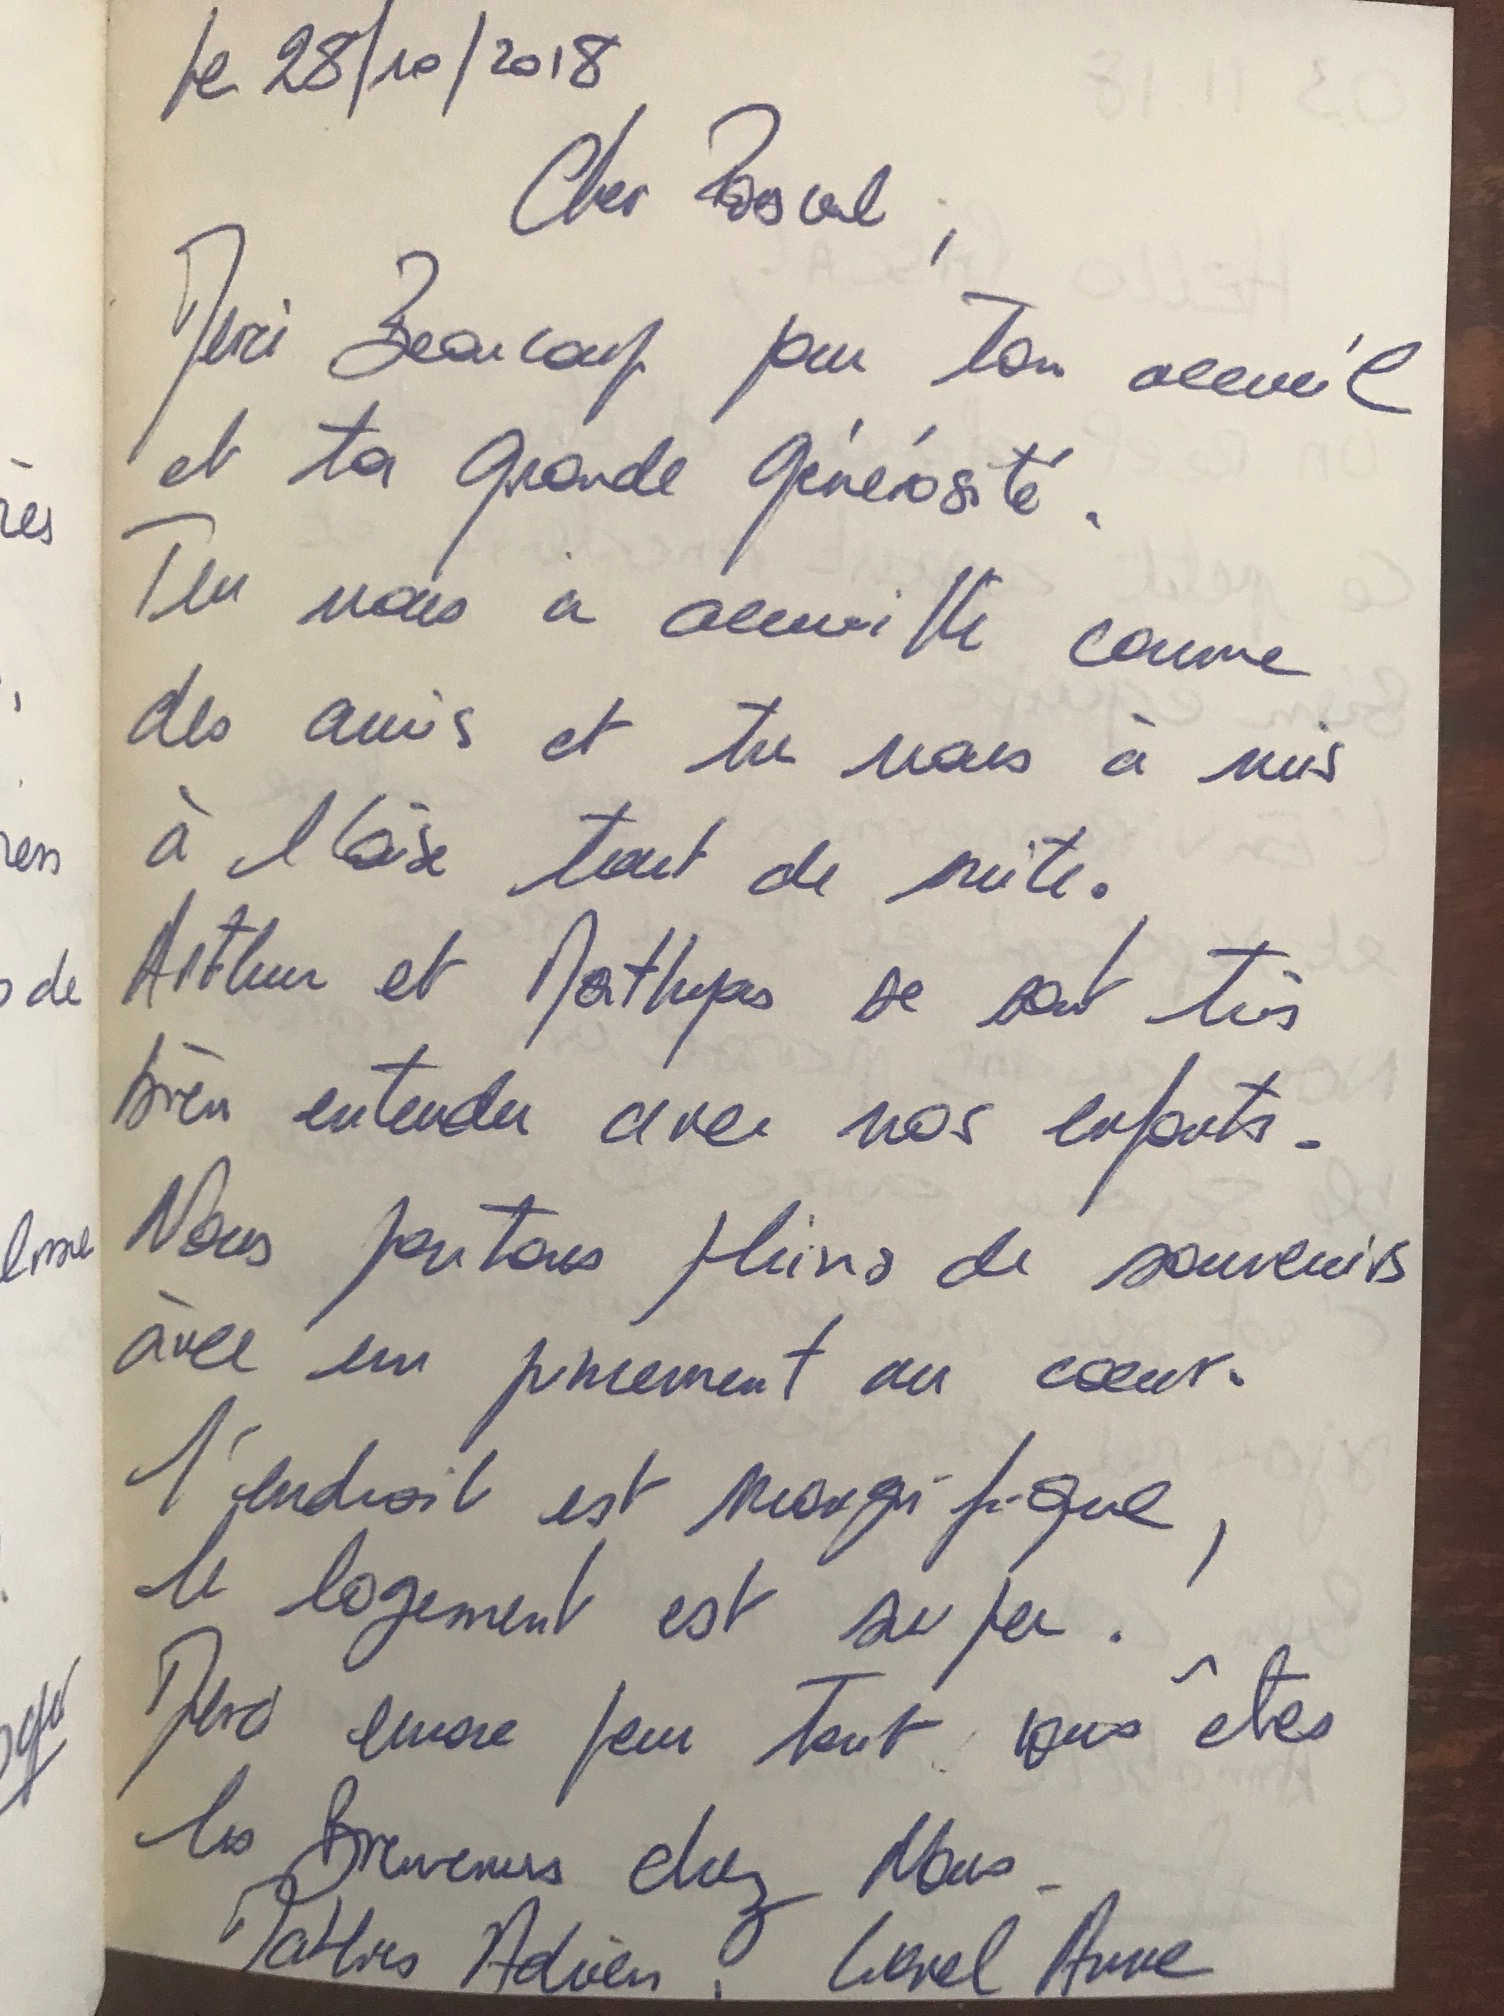 le 28/10/2018
Cher Pascal,
Merci Beaucoup pour Ton accueil
et ta grande générosité.
Tu nous a accueilli comme
des amis et tu nous à mis
à l'aise tout de suite.
Arthur et Mathyas se sont très
bien entendu avec nos enfants.
Nous partons pleins de souvenirs
avec un pincement au coeur.
l'endroit est magnifique,
le logement est super.
Merci encore pour Tout vous êtes
les Bienvenus chez Nous.
Mathis Adrien. Lionel Anne
res
ress
de